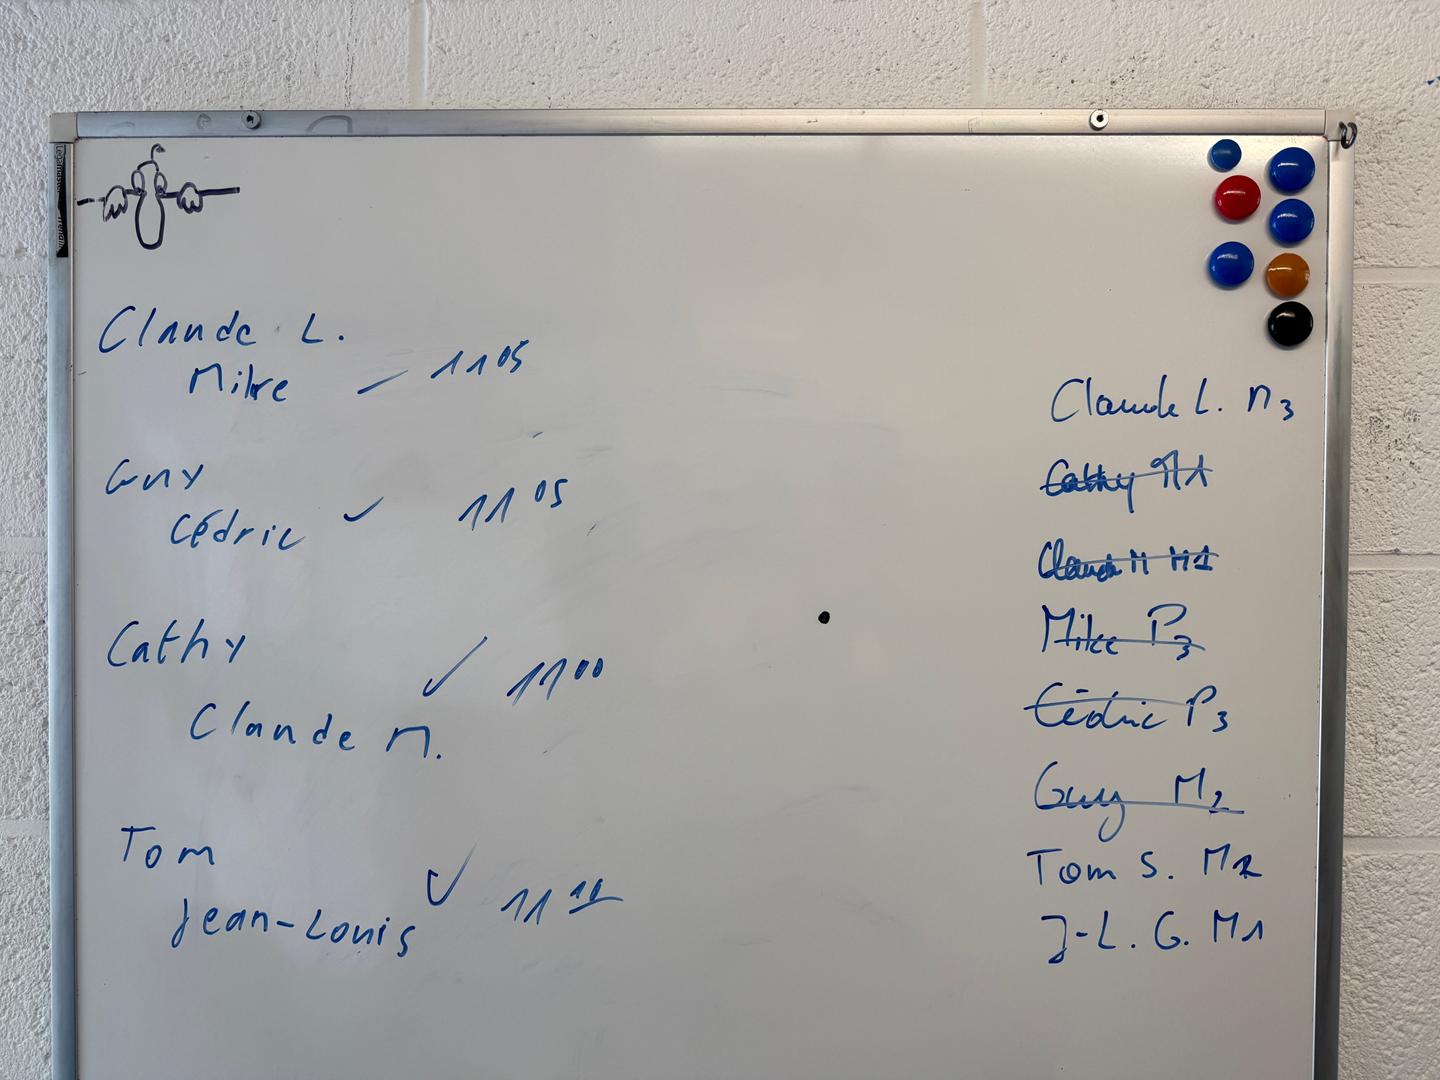 Claude L.
Mike — 11 05
Guy
Cédric ✓ 11 05
Cathy
✓ 11 00
Claude M.
Tom
Jean-Louis ✓ 11
Claude L. M3
Cathy M1
Claude M M1
Mike P3
Cédric P3
Guy M2
Tom S.
J-L. G. M1